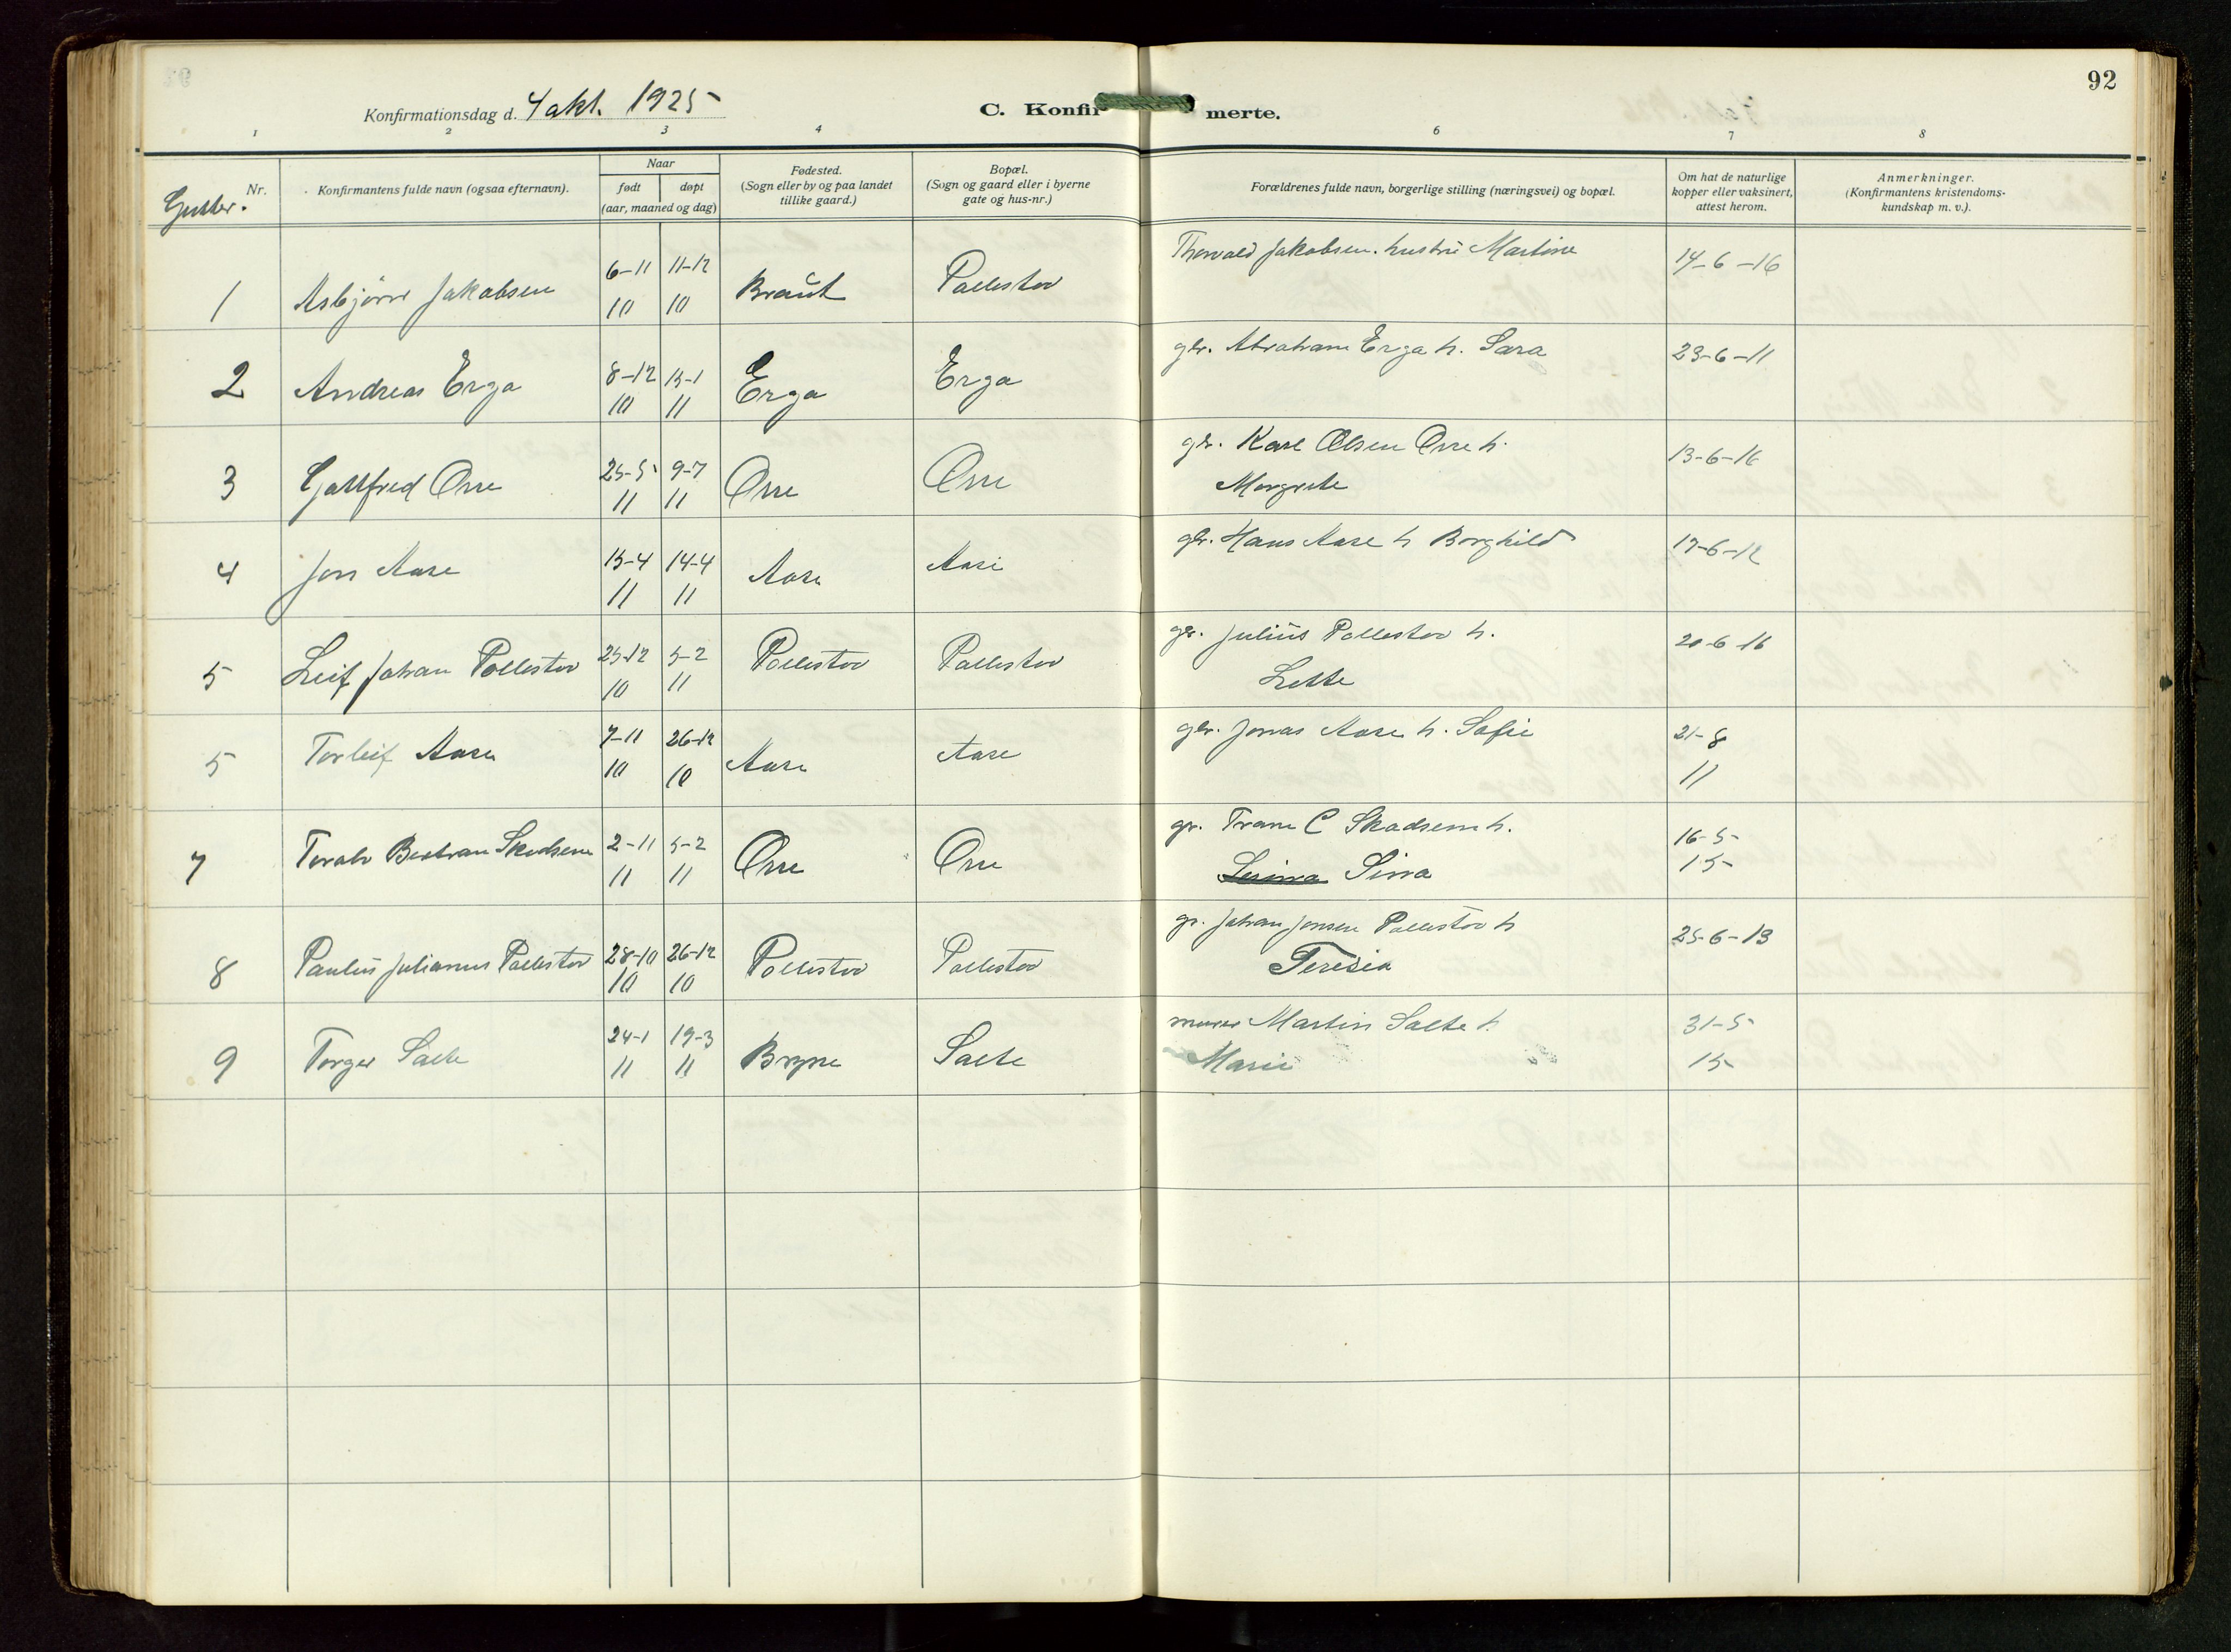 92
Konfirmationsdag d. 4 okt. 1925
C. Konfir merte.
1 2 3 4 6 7 8
Gutter. Nr.
Konfirmantens fulde navn (ogsaa efternavn).
Naar
født døpt
(aar, maaned og dag)
Fødested.
(Sogn eller by og paa landet
tillike gaard.)
Bopæl.
(Sogn og gaard eller i byerne
gate og hus-nr.)
Forældrenes fulde navn, borgerlige stilling (næringsvei) og bopæl.
Om hat de naturlige
kopper eller vaksinert,
attest herom.
Anmerkninger.
(Konfirmantens kristendoms-
kundskap m. v.).
1 Asbjørn Jakobsen 6-11 10 11-12 10 Braut Pollestov Thorvald Jakobsen. hustru Martine 14-6-16
2 Andreas Erga 8-12 10 15-1 11 Erga Erga gbr. Abraham Erga h. Sara 23-6-11
3 Gottfred Orre 25-5 11 9-7 11 Orre Orre gbr. Karl Olsen Orre h.
Margrete 13-6-16
4 Jon Aase 15-4 11 14-4 11 Aase Aase gbr. Hans Aase h Borghild 17-6-12
5 Leif Johan Pollestov 25-12 10 5-2 11 Pollestov Pollestov gbr. Julius Pollestov h.
Lette 20-6-16
5 Torleif Aase 7-11 10 26-12 10 Aase Aase gbr. Jonas Aase h. Sofie 21-8
11
7 Toralv Bertran Skadsem 2-11 11 5-2 11 Orre Orre gr. Tran C Skadsem h.
Serina Sina 16-5-
15-
8 Paulus Julianus Pollestov 28-10 10 26-12 10 Pollestov Pollestov gr. Johan Jonsen Pollestov h
Teresia 25-6-13
9 Torger Salte 24-1 11 19-3 11 Bryne Salte murer Martin Salte h.
Marie 31-5-
15-